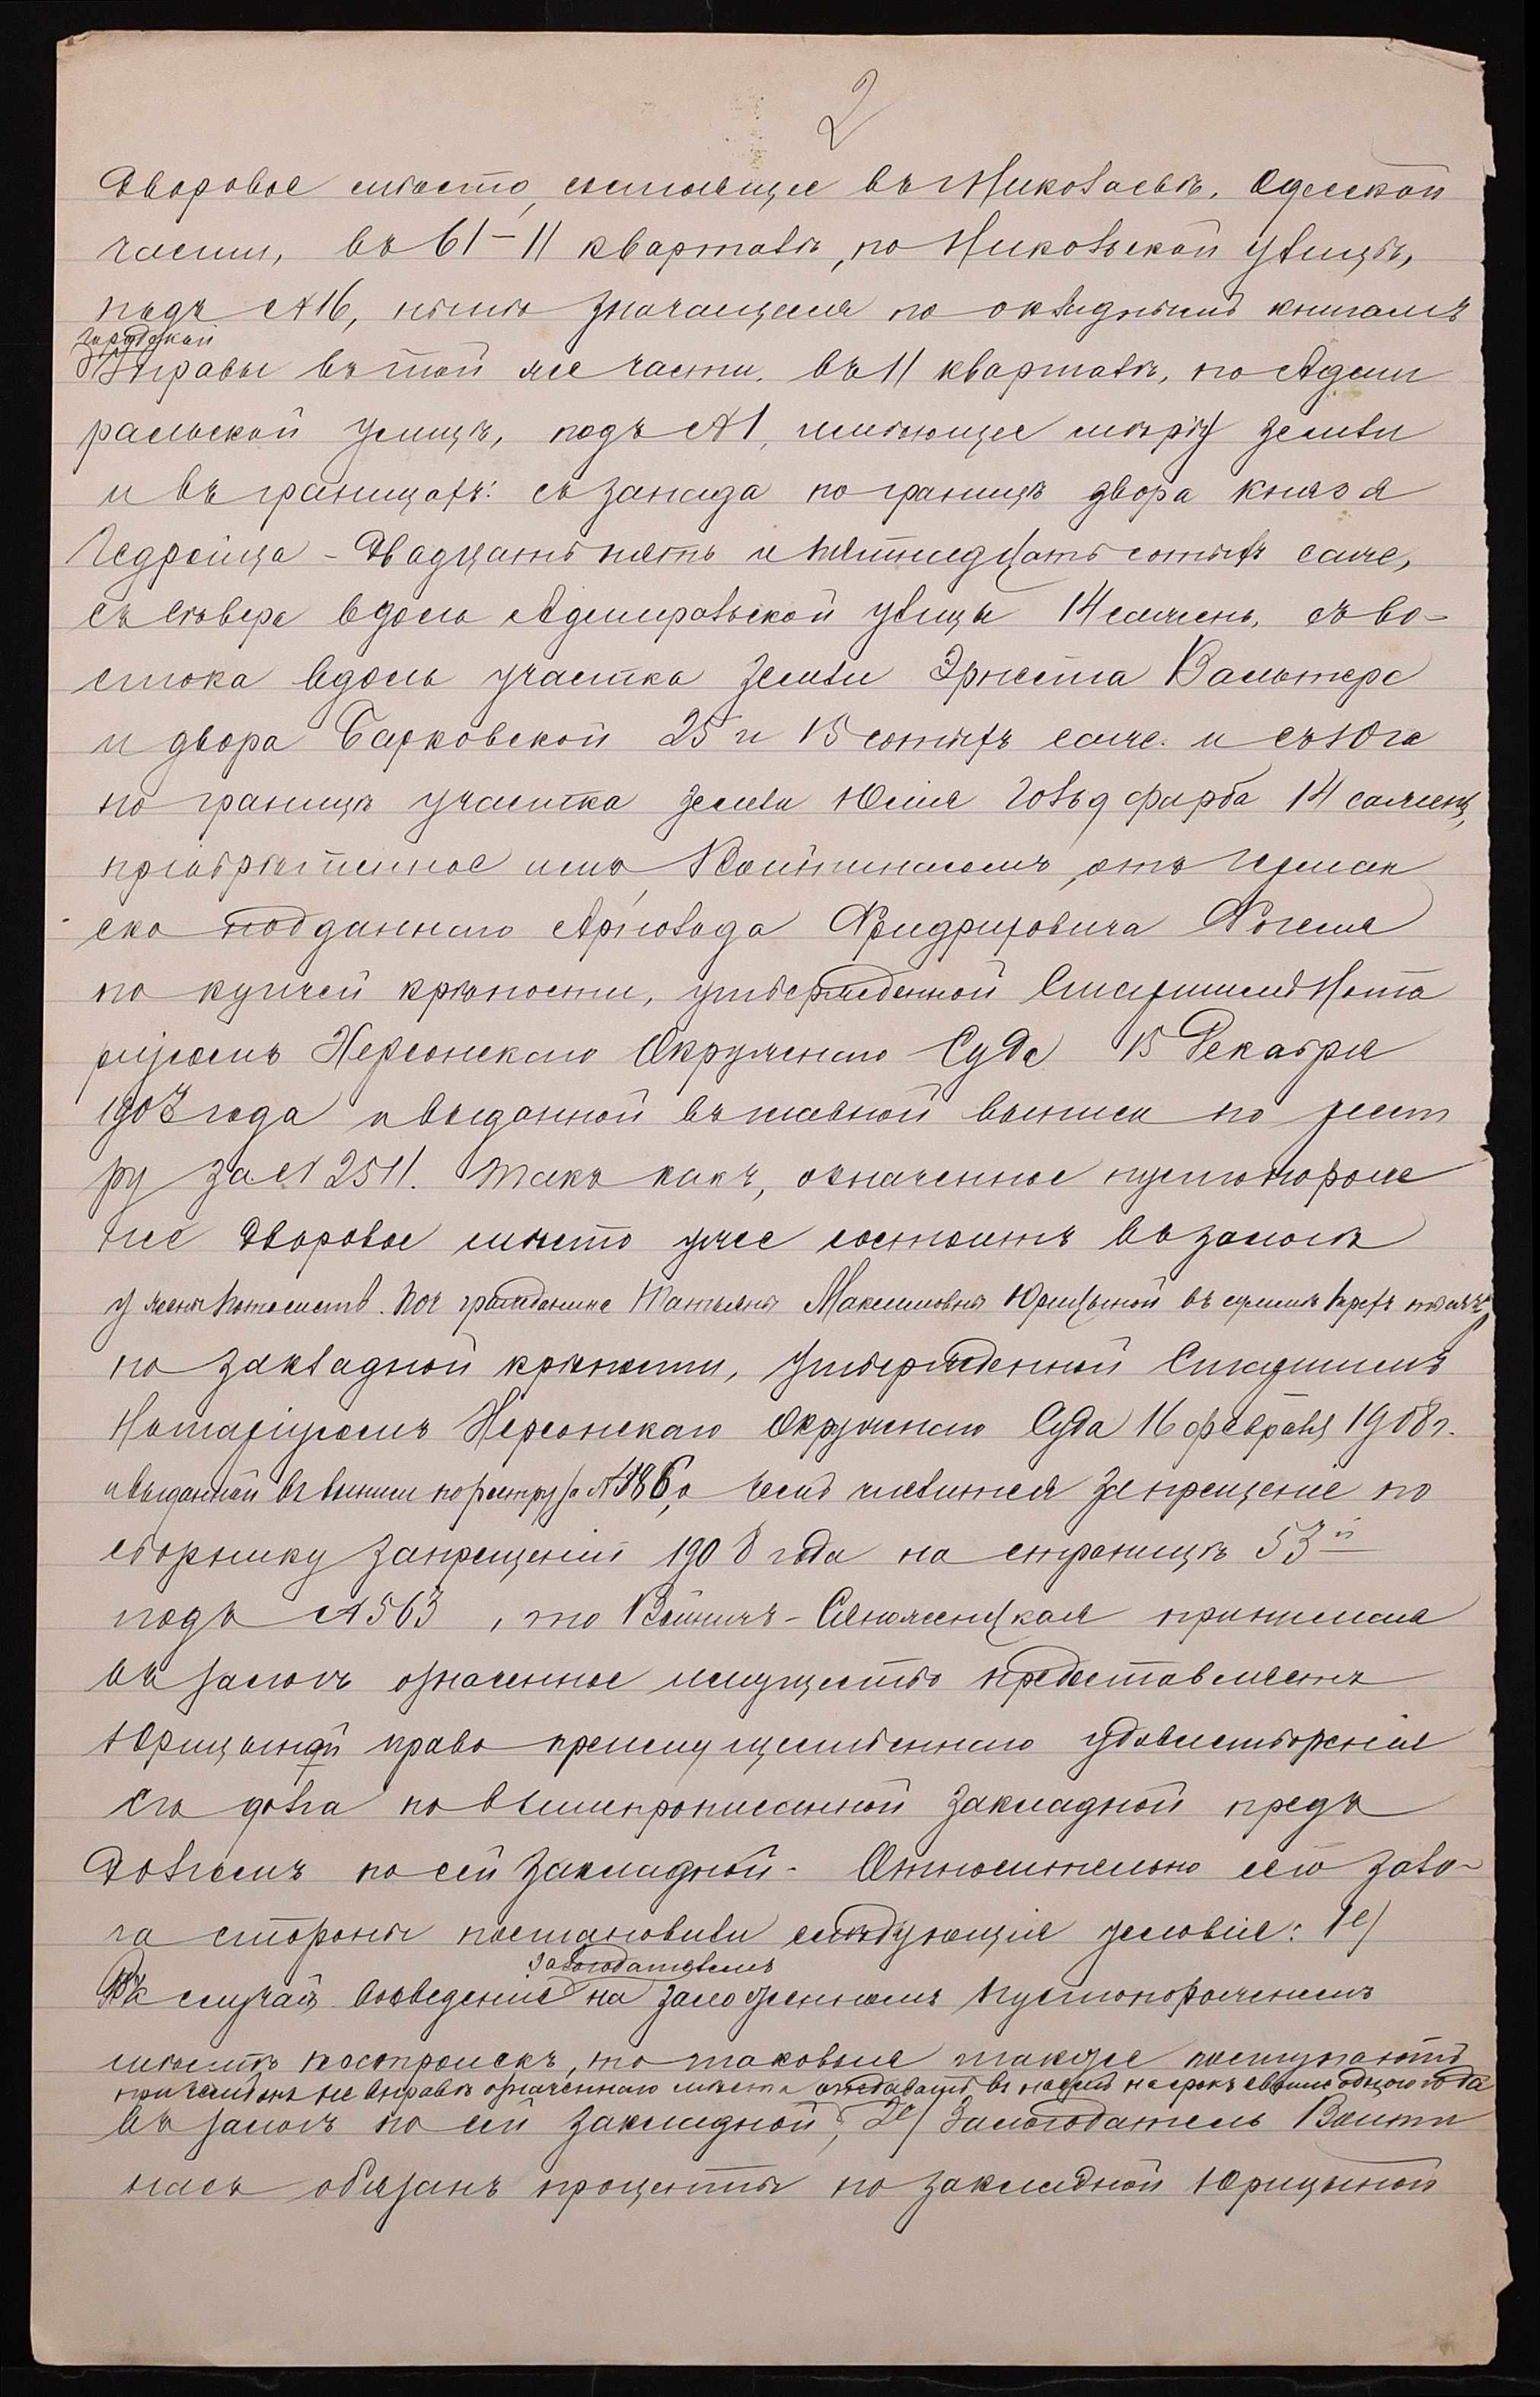 2
дворовое мѣсто, состоящее въ Николаевѣ, Одесской
части, въ 61-11 кварталѣ, по Никольской улицѣ,
подъ № 16, нынѣ значащееся по окладнымъ книгамъ
городской
Управы въ той же части въ 11 кварталѣ, по Адми
ральской улицѣ, подъ № 1, имѣющее мѣру земли
и въ границахъ: съ запада по границѣ двора князя
Гедройца - двадцать пять и пятнадцать сотыхъ саже,
съ сѣвера вдоль Адмиральской улицы 14 сажень, съ во-
стока вдоль участка земли Эрнеста Вальтера
и двора Барковской 25 и 15 сотыхъ саже. и съ юга
по границѣ участка земли Юлія Гольдфарба 14 сажень,
пріобрѣтенное имъ, Войтинасомъ, отъ герман
ско подданнаго Арнольда Фридриховича
по купчей крѣпости, утвержденной Старшимъ Нота
ріусомъ Херсонскаго Окружнаго Суда 15 Декабря
1907 года и выданной въ главной выписи по реест
ру за № 2511. Такъ какъ, означенное пустопорож
нее дворовое мѣсто уже состоитъ въ залогѣ
у жены потомств. поч. гражданина Татьяны Максимовны Юрицыной въ суммѣ трехъ тысячъ,
по закладной крѣпости, утвержденной Старшимъ
Нотаріусомъ Херсонскаго Окружнаго Суда 16 февраля 1908 г.
и выданной въ выписи по реестру за № 186, о чемъ числится запрещеніе по
сборнику запрещеній 1908 года на страницѣ 53й
подъ № 563, то Войничъ-Сяноженцкая принимая
въ залогъ означенное имущество предоставляетъ
Юрицыной право преимущественнаго удовлетворенія
его долга по вышепрописанной закладной предъ
долгомъ по сей закладной. Относительно сего зало-
га стороны постановили слѣдующія условія: 1е/
залогодателемъ
Въ случаѣ возведенія на заложенномъ пустопорожнемъ
мѣстѣ построекъ, то таковыя также поступаютъ
при чемъ онъ не вправѣ означеннаго мѣста отдавать въ наемъ на срокъ свыше одного года
въ залогъ по сей закладной; 2е/ Залогодатель Войти
насъ обязанъ проценты по закладной Юрицыной